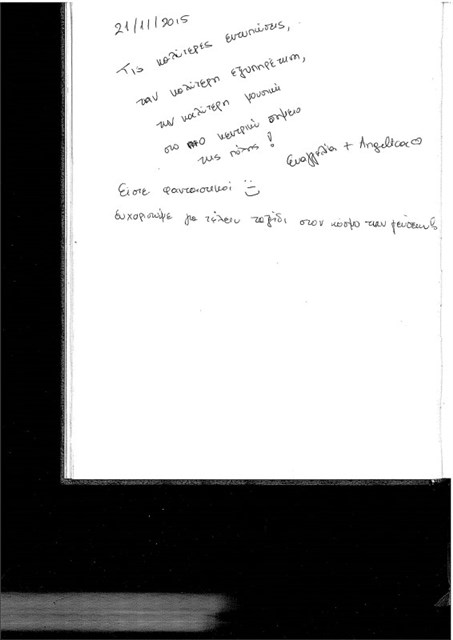 21/11/2015
Τις καλύτερες εντυπώσεις,
την καλύτερη εξυπηρέτηση,
την καλύτερη μουσική
στο πιο κεντρικό σημείο
της πόλης!
Ευαγγελία + Angelica
Είστε φανταστικοί
Ευχαριστούμε για τέλειο ταξίδι στον κόσμο των γεύσεων